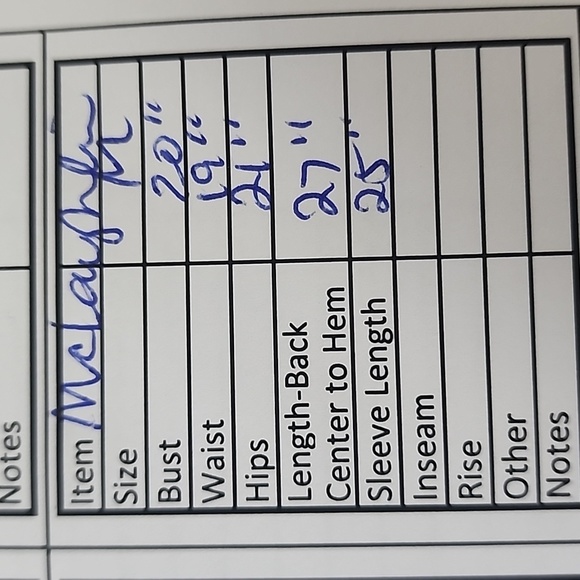 Notes
Item McLaughlin
Size
Bust 20"
Waist 19"
Hips 21"
Length-Back
Center to Hem 27"
Sleeve Length 25"
Inseam
Rise
Other
Notes